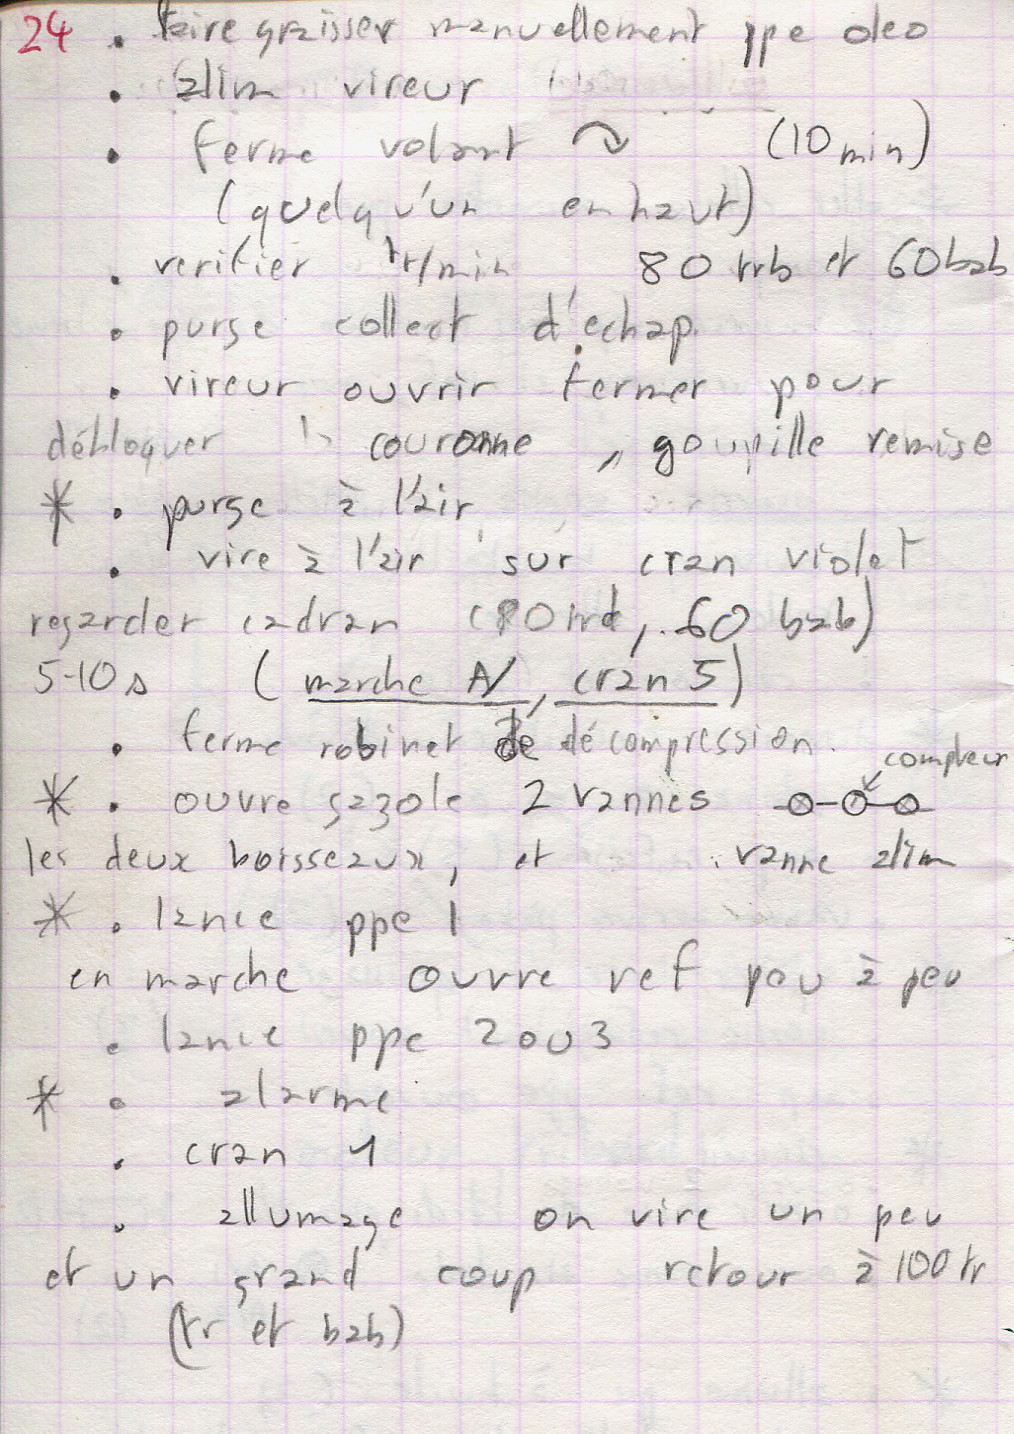 24 . faire graisser manuellement ppe deo
. alim vireur
. ferme volant (10 min)
(quelqu'un en haut)
. verifier tr/min 80 trb et 60 bab
. purge collect d'echap.
. vireur ouvrir fermer pour
débloquer la couronne, goupille remise
* . purge à l'air
. vire à l'air sur cran violet
regarder cadran 60 bab)
5-10s (marche A/, cran 5)
. ferme robinet de décompression.
compteur
* . ouvre gazole 2 vannes
les deux boisseaux, et vanne alim
* . lance ppe 1
en marche ouvre ref peu à peu
. lance ppe 2 ou 3
* . alarme
. cran 4
. allumage on vire un peu
et un grand coup retour à 100 tr
(tr et bab)